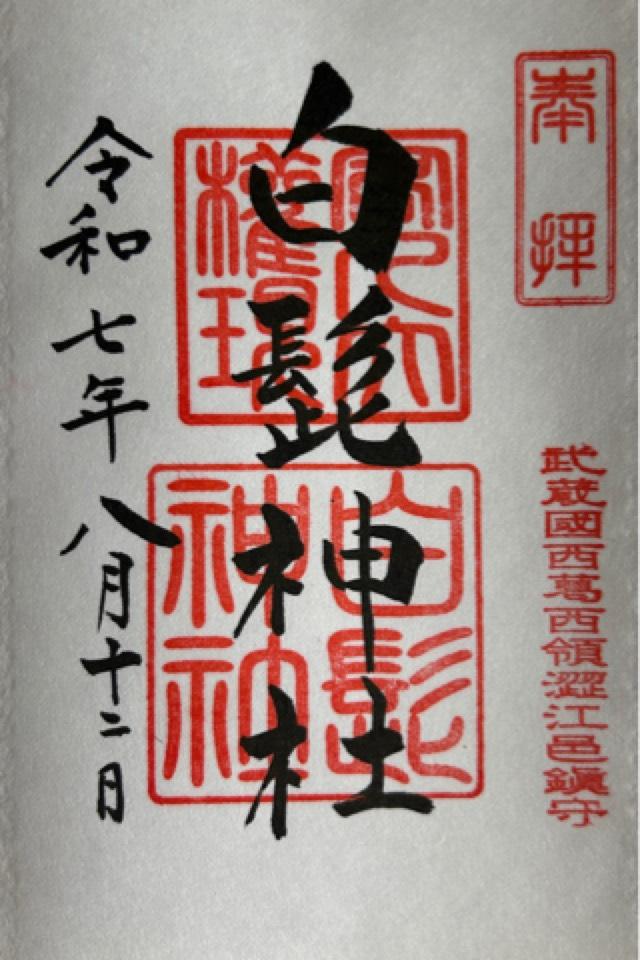 奉拝
武蔵國西葛西領澀江邑鎮守
白髭神社
白髭神社
令和七年八月十二日